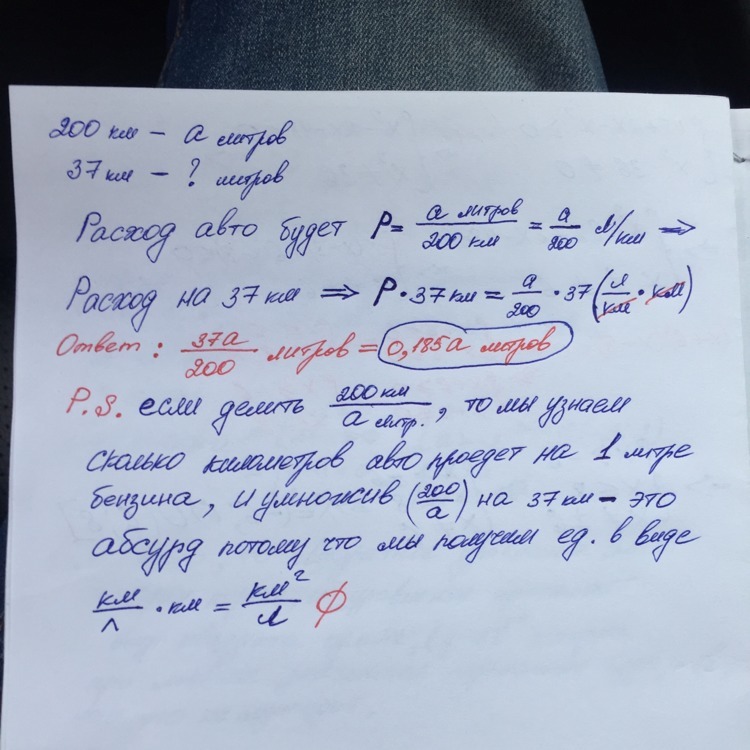 200 км – а литров
37 км – ? литров
Расход авто будет Р = а литров / 200 км = а/200 л/км ⇒
Расход на 37 км ⇒ Р · 37 км = а/200 · 37 (л/км · км)
Ответ: 37а/200 литров = 0,185а литров
P.S. если делить 200 км / а литр., то мы узнаем
сколько километров авто проедет на 1 литре
бензина, и умножив (200/а) на 37 км – это
абсурд потому что мы получим ед. в виде
км/л · км = км²/л ∅